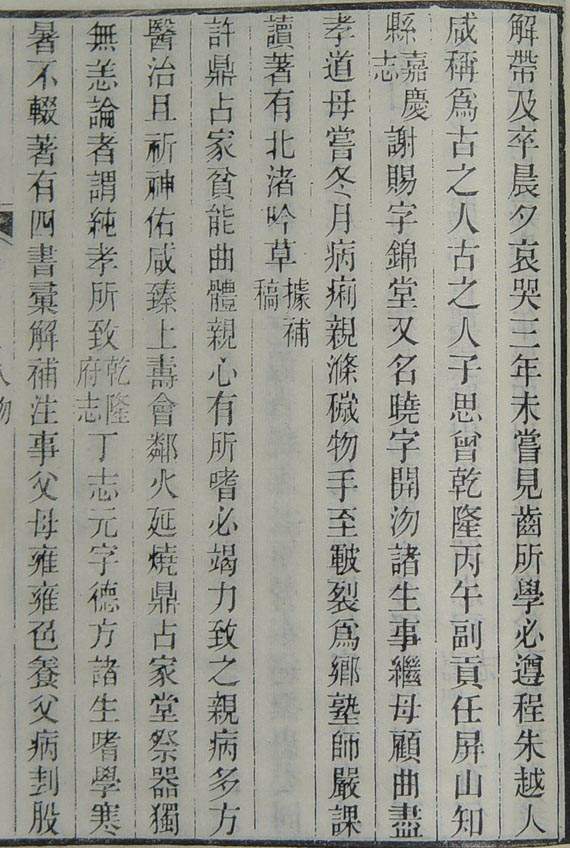 解帶及卒晨夕哀哭三年未嘗見齒所學必遵程朱越人
咸稱爲古之人古之人子思曾乾隆丙午副貢任屏山知
縣嘉慶志謝賜字錦堂又名曉字開沕諸生事繼母顧曲盡
孝道母嘗冬月病痢親滌穢物手至皸裂爲鄉塾師嚴課
讀著有北渚吟草據補稿
許鼎占家貧能曲體親心有所嗜必竭力致之親病多方
醫治且祈神佑咸臻上壽會鄰火延燒鼎占家堂祭器獨
無恙論者謂純孝所致乾隆府志丁志元字德方諸生嗜學寒
暑不輟著有四書彙解補注事父母雍雍色養父病刲股